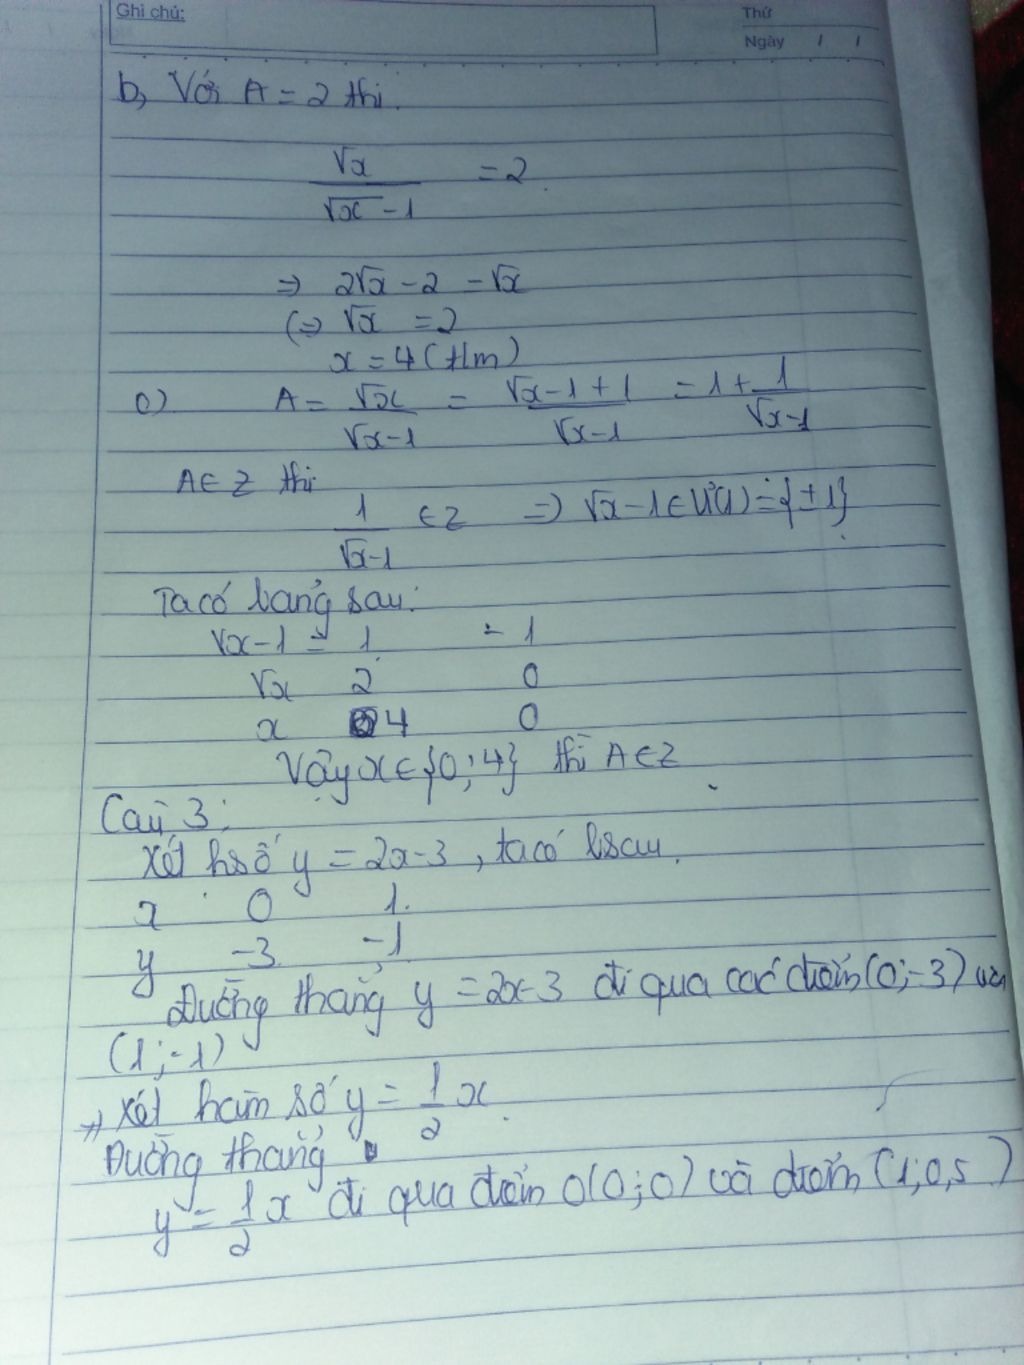 Ghi chú:
Thứ
Ngày / /
b, Với A = 2 thì.
√x / (√x - 1) = 2
=> 2√x - 2 = √x
(=> √x = 2
x = 4 (t/m)
c) A = √x / (√x - 1) = (√x - 1 + 1) / (√x - 1) = 1 + 1 / (√x - 1)
A ∈ Z thì
1 / (√x - 1) ∈ Z => √x - 1 ∈ Ư(1) = {± 1}
Ta có bảng sau:
√x - 1 = 1 - 1
√x 2 0
x 4 0
Vậy x ∈ {0; 4} thì A ∈ Z
Câu 3:
Xét hsố y = 2x - 3, ta có bsau.
x 0 1
y -3 -1
Đường thẳng y = 2x - 3 đi qua các điểm (0; -3) và
(1; -1)
+, Xét hàm số y = 1/2 x
Đường thẳng
y = 1/2 x đi qua điểm O(0; 0) và điểm (1; 0,5)